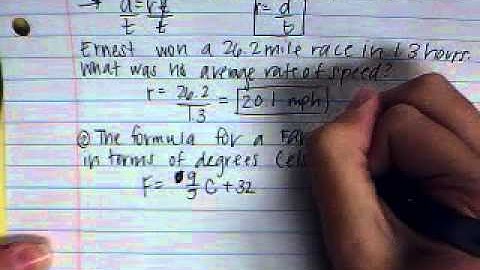 → d/t = rt/t r = d/t
Ernest won a 26.2 mile race in 1.3 hours.
What was his average rate of speed?
r = 26.2/1.3 = 20.1 mph
② The formula for a
in terms of degrees
F = 9/5 C + 32